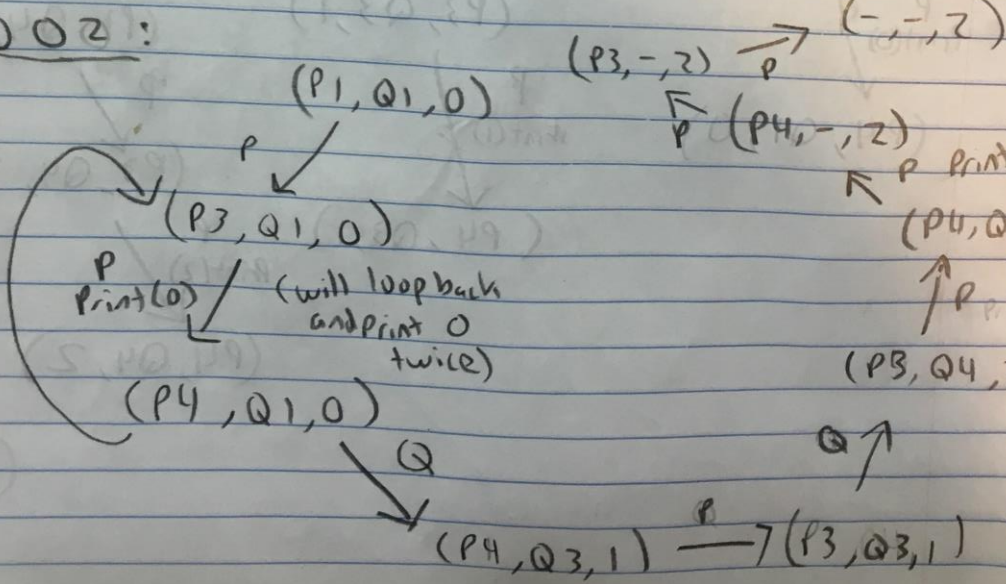 002:
(P1, Q1, 0)
P
(P3, Q1, 0)
P
Print(0)
(will loop back
and print 0
twice)
(P4, Q1, 0)
Q
(P4, Q3, 1)
P
(P3, Q3, 1)
Q
(P3, Q4,
P
(P4, Q
P Print
(P4, -, 2)
P
(P3, -, 2)
P
(-, -, 2)